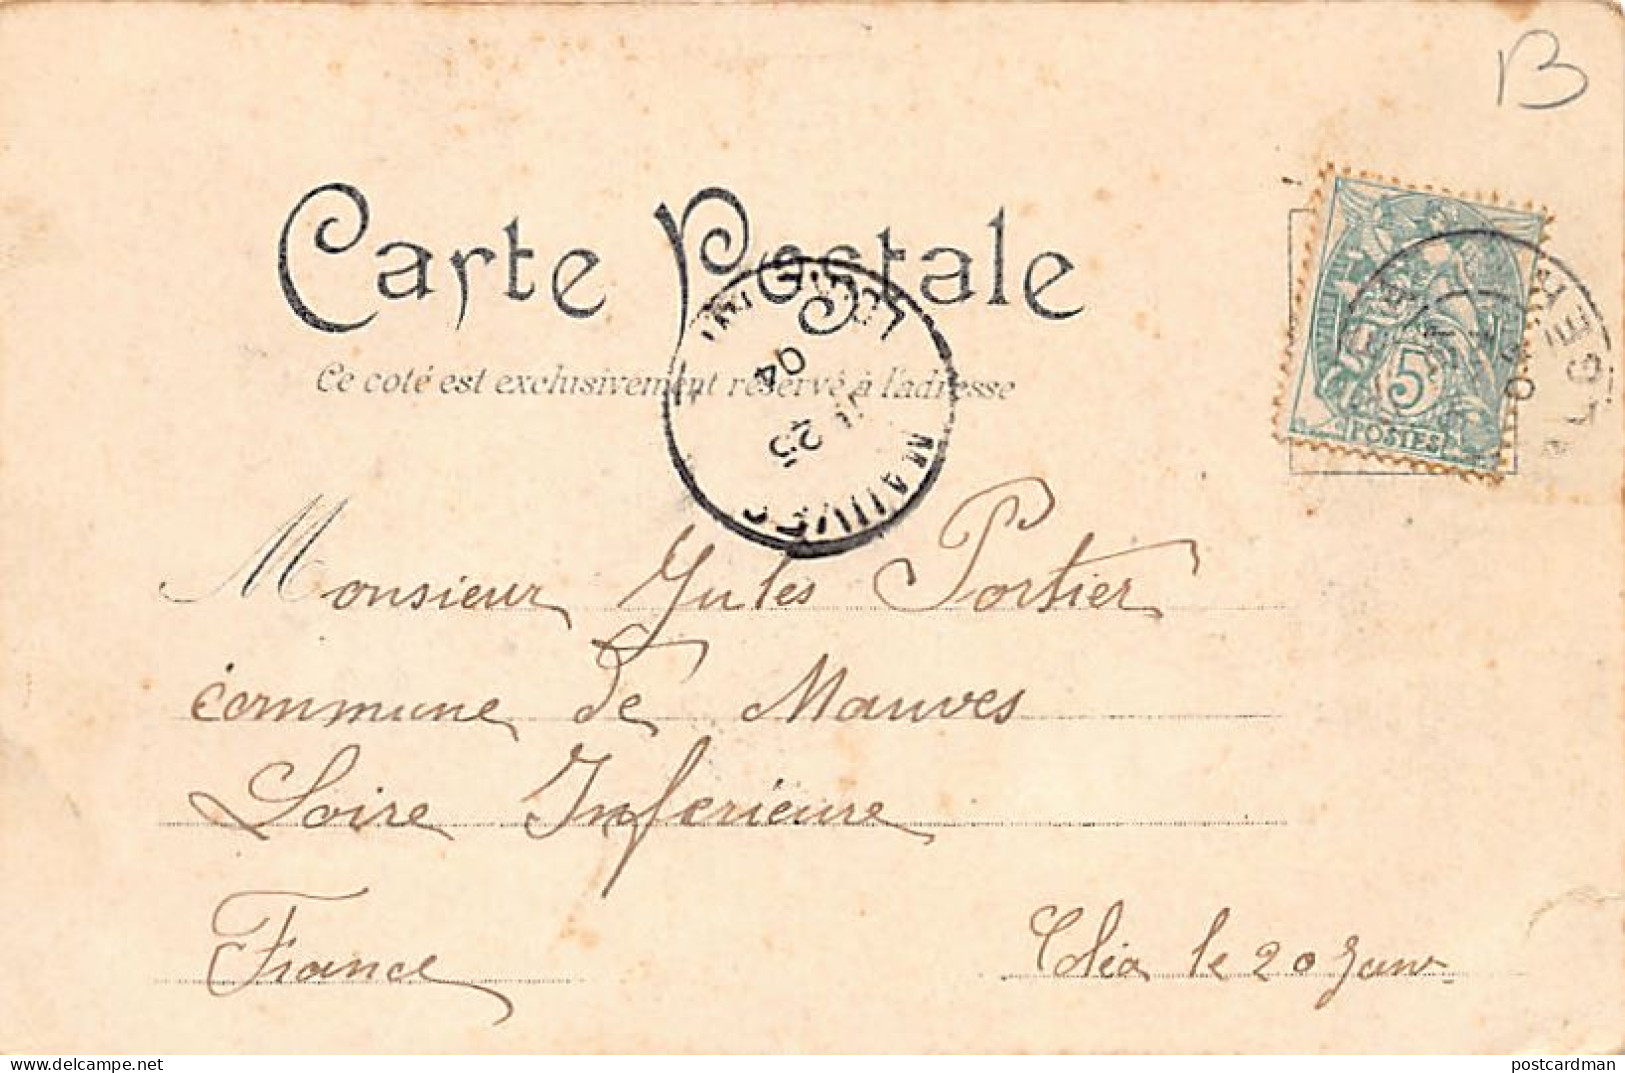 B
Carte Postale
Ce coté est exclusivement réservé à l'adresse
LOIRE INF
04
25
MAUVES
5
POSTES
ALGER
Monsieur Jules Portier
commune de Mauves
Loire Inferieure
France
le 20 Janv
www.delcampe.net
postcardman